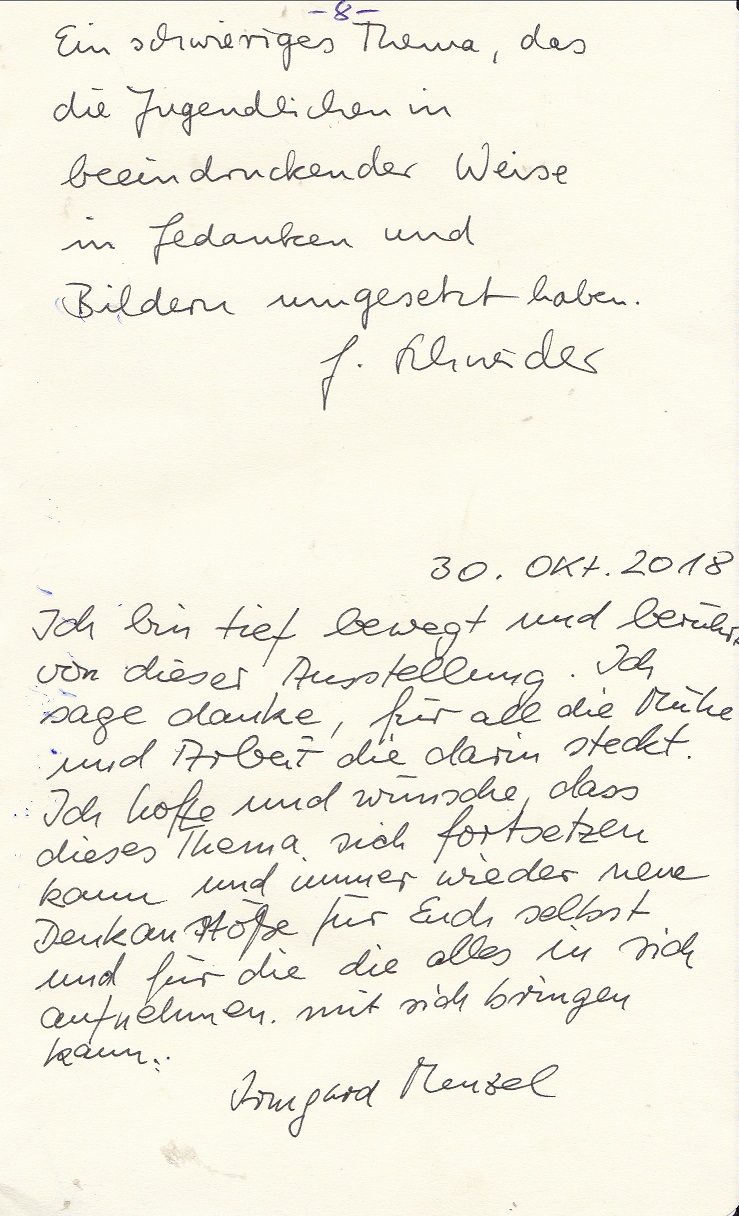 -8-
Ein schwieriges Thema, das
die Jugendlichen in
beeindruckender Weise
in Gedanken und
Bildern umgesetzt haben.
G. Schneider
30. OKt. 2018
Ich bin tief bewegt und berührt
von dieser Ausstellung. Ich
sage danke, für all die Mühe
und Arbeit die darin steckt.
Ich hoffe und wünsche, dass
dieses Thema sich fortsetzen
kann und immer wieder neue
Denkanstöße für Euch selbst
und für die die alles in sich
aufnehmen. mit sich bringen
kann.
Irmgard Menzel